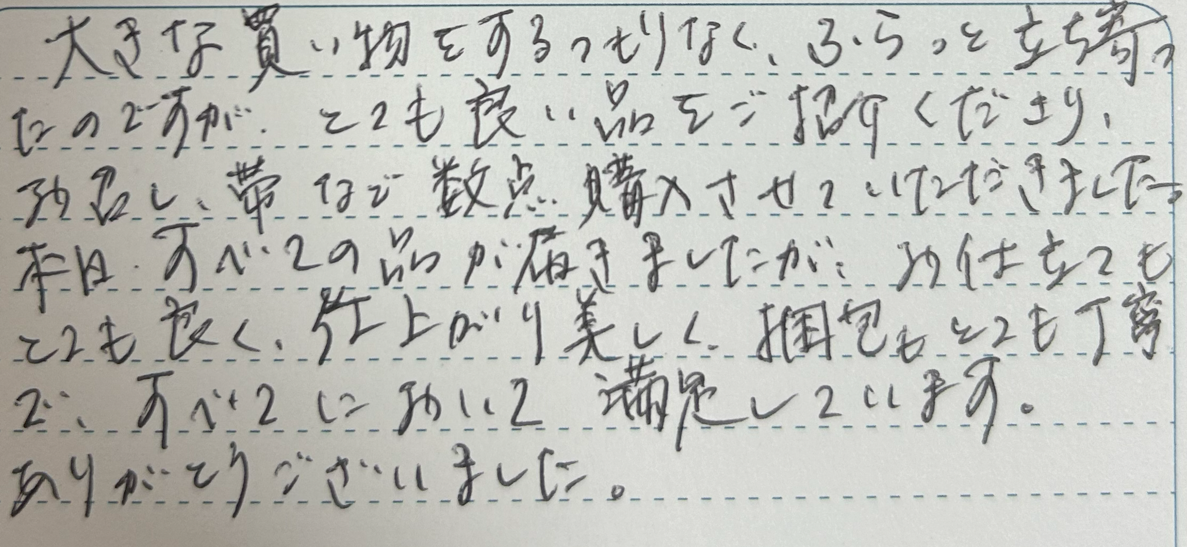 大きな買い物をするつもりなく、ふらっと立ち寄っ
たのですが、とても良い品をご紹介くださり、
お召し、帯など数点購入させていただきました。
本日、すべての品が届きましたが、お仕立ても
とても良く、仕上がり美しく、梱包もとても丁寧
で、すべてにおいて満足しています。
ありがとうございました。